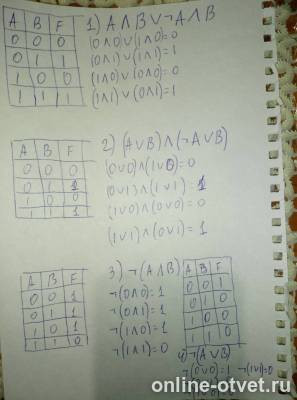 A B F
0 0 0
0 1 1
1 0 0
1 1 1
1) A∧B∨¬A∧B
(0∧0)∨(1∧0)=0
(0∧1)∨(1∧1)=1
(1∧0)∨(0∧0)=0
(1∧1)∨(0∧1)=1
A B F
0 0 0
0 1 1
1 0 0
1 1 1
2) (A∨B)∧(¬A∨B)
(0∨0)∧(1∨0)=0
(0∨1)∧(1∨1)=1
(1∨0)∧(0∨0)=0
(1∨1)∧(0∨1)=1
A B F
0 0 1
0 1 1
1 0 1
1 1 0
3) ¬(A∧B)
¬(0∧0)=1
¬(0∧1)=1
¬(1∧0)=1
¬(1∧1)=0
A B F
0 0 1
0 1 0
1 0 0
1 1 0
4) ¬(A∨B)
¬(0∨0)=1 ¬(1∨1)=0
online-otvet.ru